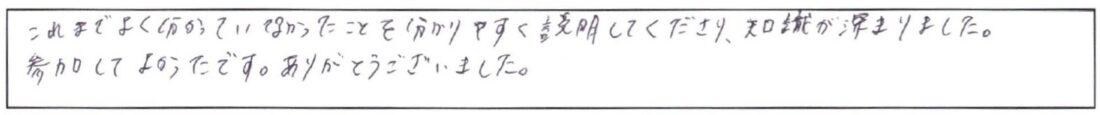 これまでよく分かっていなかったことを分かりやすく説明してくださり、知識が深まりました。
参加してよかったです。ありがとうございました。